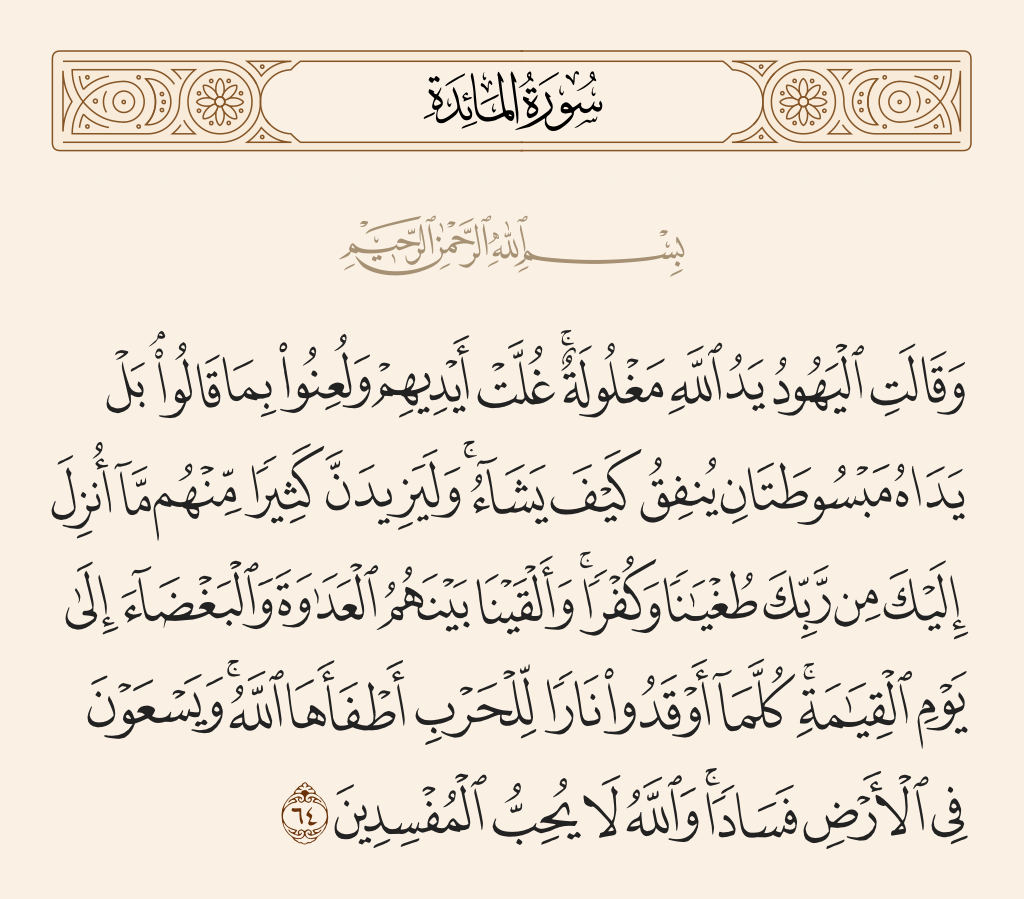 سُورَةُ المَائِدَةِ
بِسْمِ ٱللَّهِ ٱلرَّحْمَٰنِ ٱلرَّحِيمِ
وَقَالَتِ ٱلْيَهُودُ يَدُ ٱللَّهِ مَغْلُولَةٌۚ غُلَّتْ أَيْدِيهِمْ وَلُعِنُوا۟ بِمَا قَالُوا۟ۘ بَلْ
يَدَاهُ مَبْسُوطَتَانِ يُنفِقُ كَيْفَ يَشَآءُۚ وَلَيَزِيدَنَّ كَثِيرًا مِّنْهُم مَّآ أُنزِلَ
إِلَيْكَ مِن رَّبِّكَ طُغْيَٰنًا وَكُفْرًاۚ وَأَلْقَيْنَا بَيْنَهُمُ ٱلْعَدَٰوَةَ وَٱلْبَغْضَآءَ إِلَىٰ
يَوْمِ ٱلْقِيَٰمَةِۚ كُلَّمَآ أَوْقَدُوا۟ نَارًا لِّلْحَرْبِ أَطْفَأَهَا ٱللَّهُۚ وَيَسْعَوْنَ
فِى ٱلْأَرْضِ فَسَادًاۚ وَٱللَّهُ لَا يُحِبُّ ٱلْمُفْسِدِينَ ٦٤